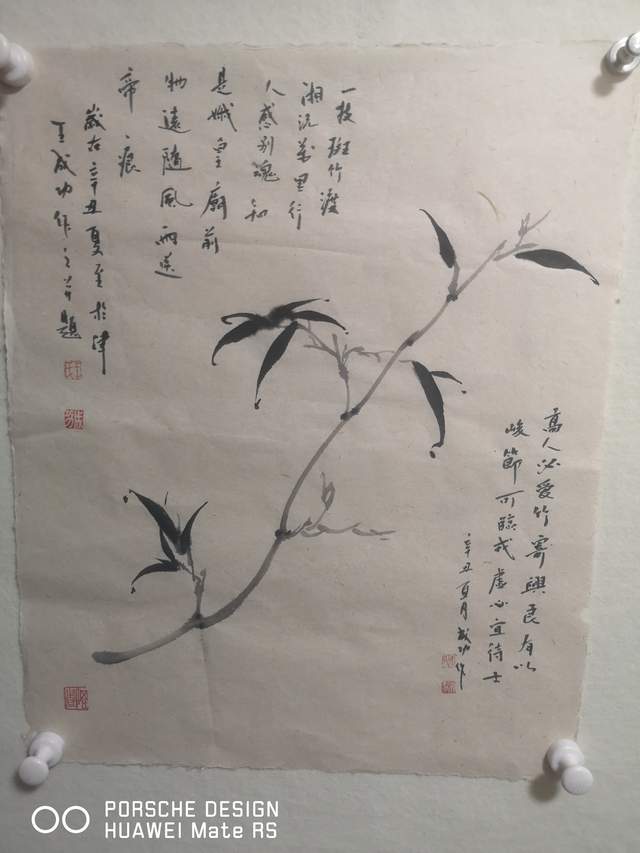 一枝斑竹渡
湘沅萬里行
人感别魂知
是娥皇廟前
物遠隨風雨送
帝痕
歲在辛丑夏至於津
王成功作之并題
高人必愛竹寄興良有以
峻節可臨戎虛心宜待士
辛丑夏月成功作
PORSCHE DESIGN
HUAWEI Mate RS